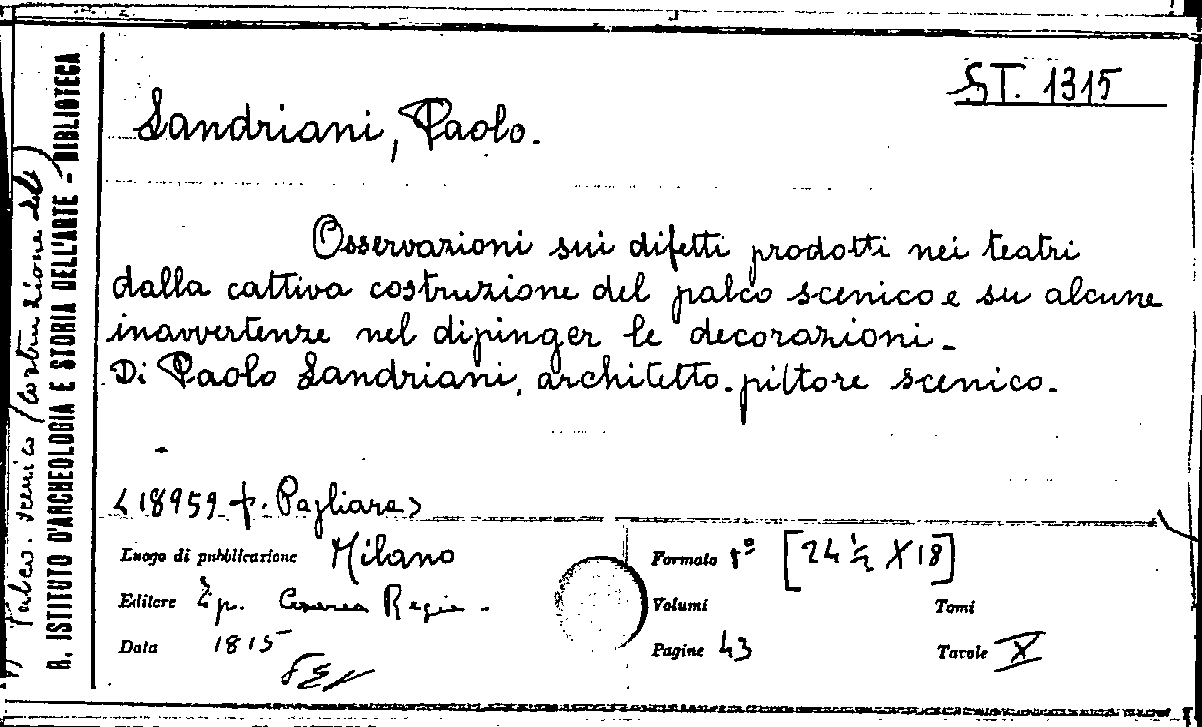 ST. 1315
Landriani, Paolo.
Osservazioni sui difetti prodotti nei teatri
dalla cattiva costruzione del palco scenico e su alcune
inavvertenze nel dipinger le decorazioni.
Di Paolo Landriani, architetto-pittore scenico.
<18959 f. Pagliara>
Luogo di pubblicazione Milano
Formato 8º [24 ½ X 18]
Editore Ip. Cesarea Regia.
Volumi Tomi
Data 1815
Pagine 43 Tavole X
R. ISTITUTO D'ARCHEOLOGIA E STORIA DELL'ARTE - BIBLIOTECA
Palco scenico (costruzione del)